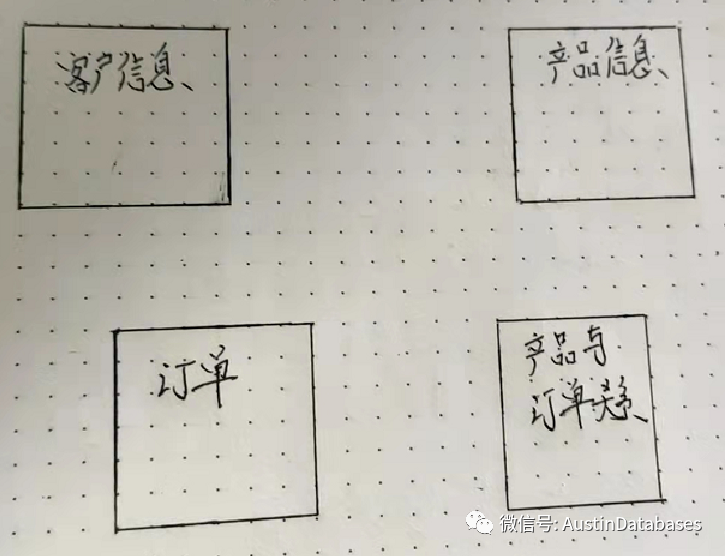 客户信息
产品信息
订单
产品与
订单关系
微信号: AustinDatabases